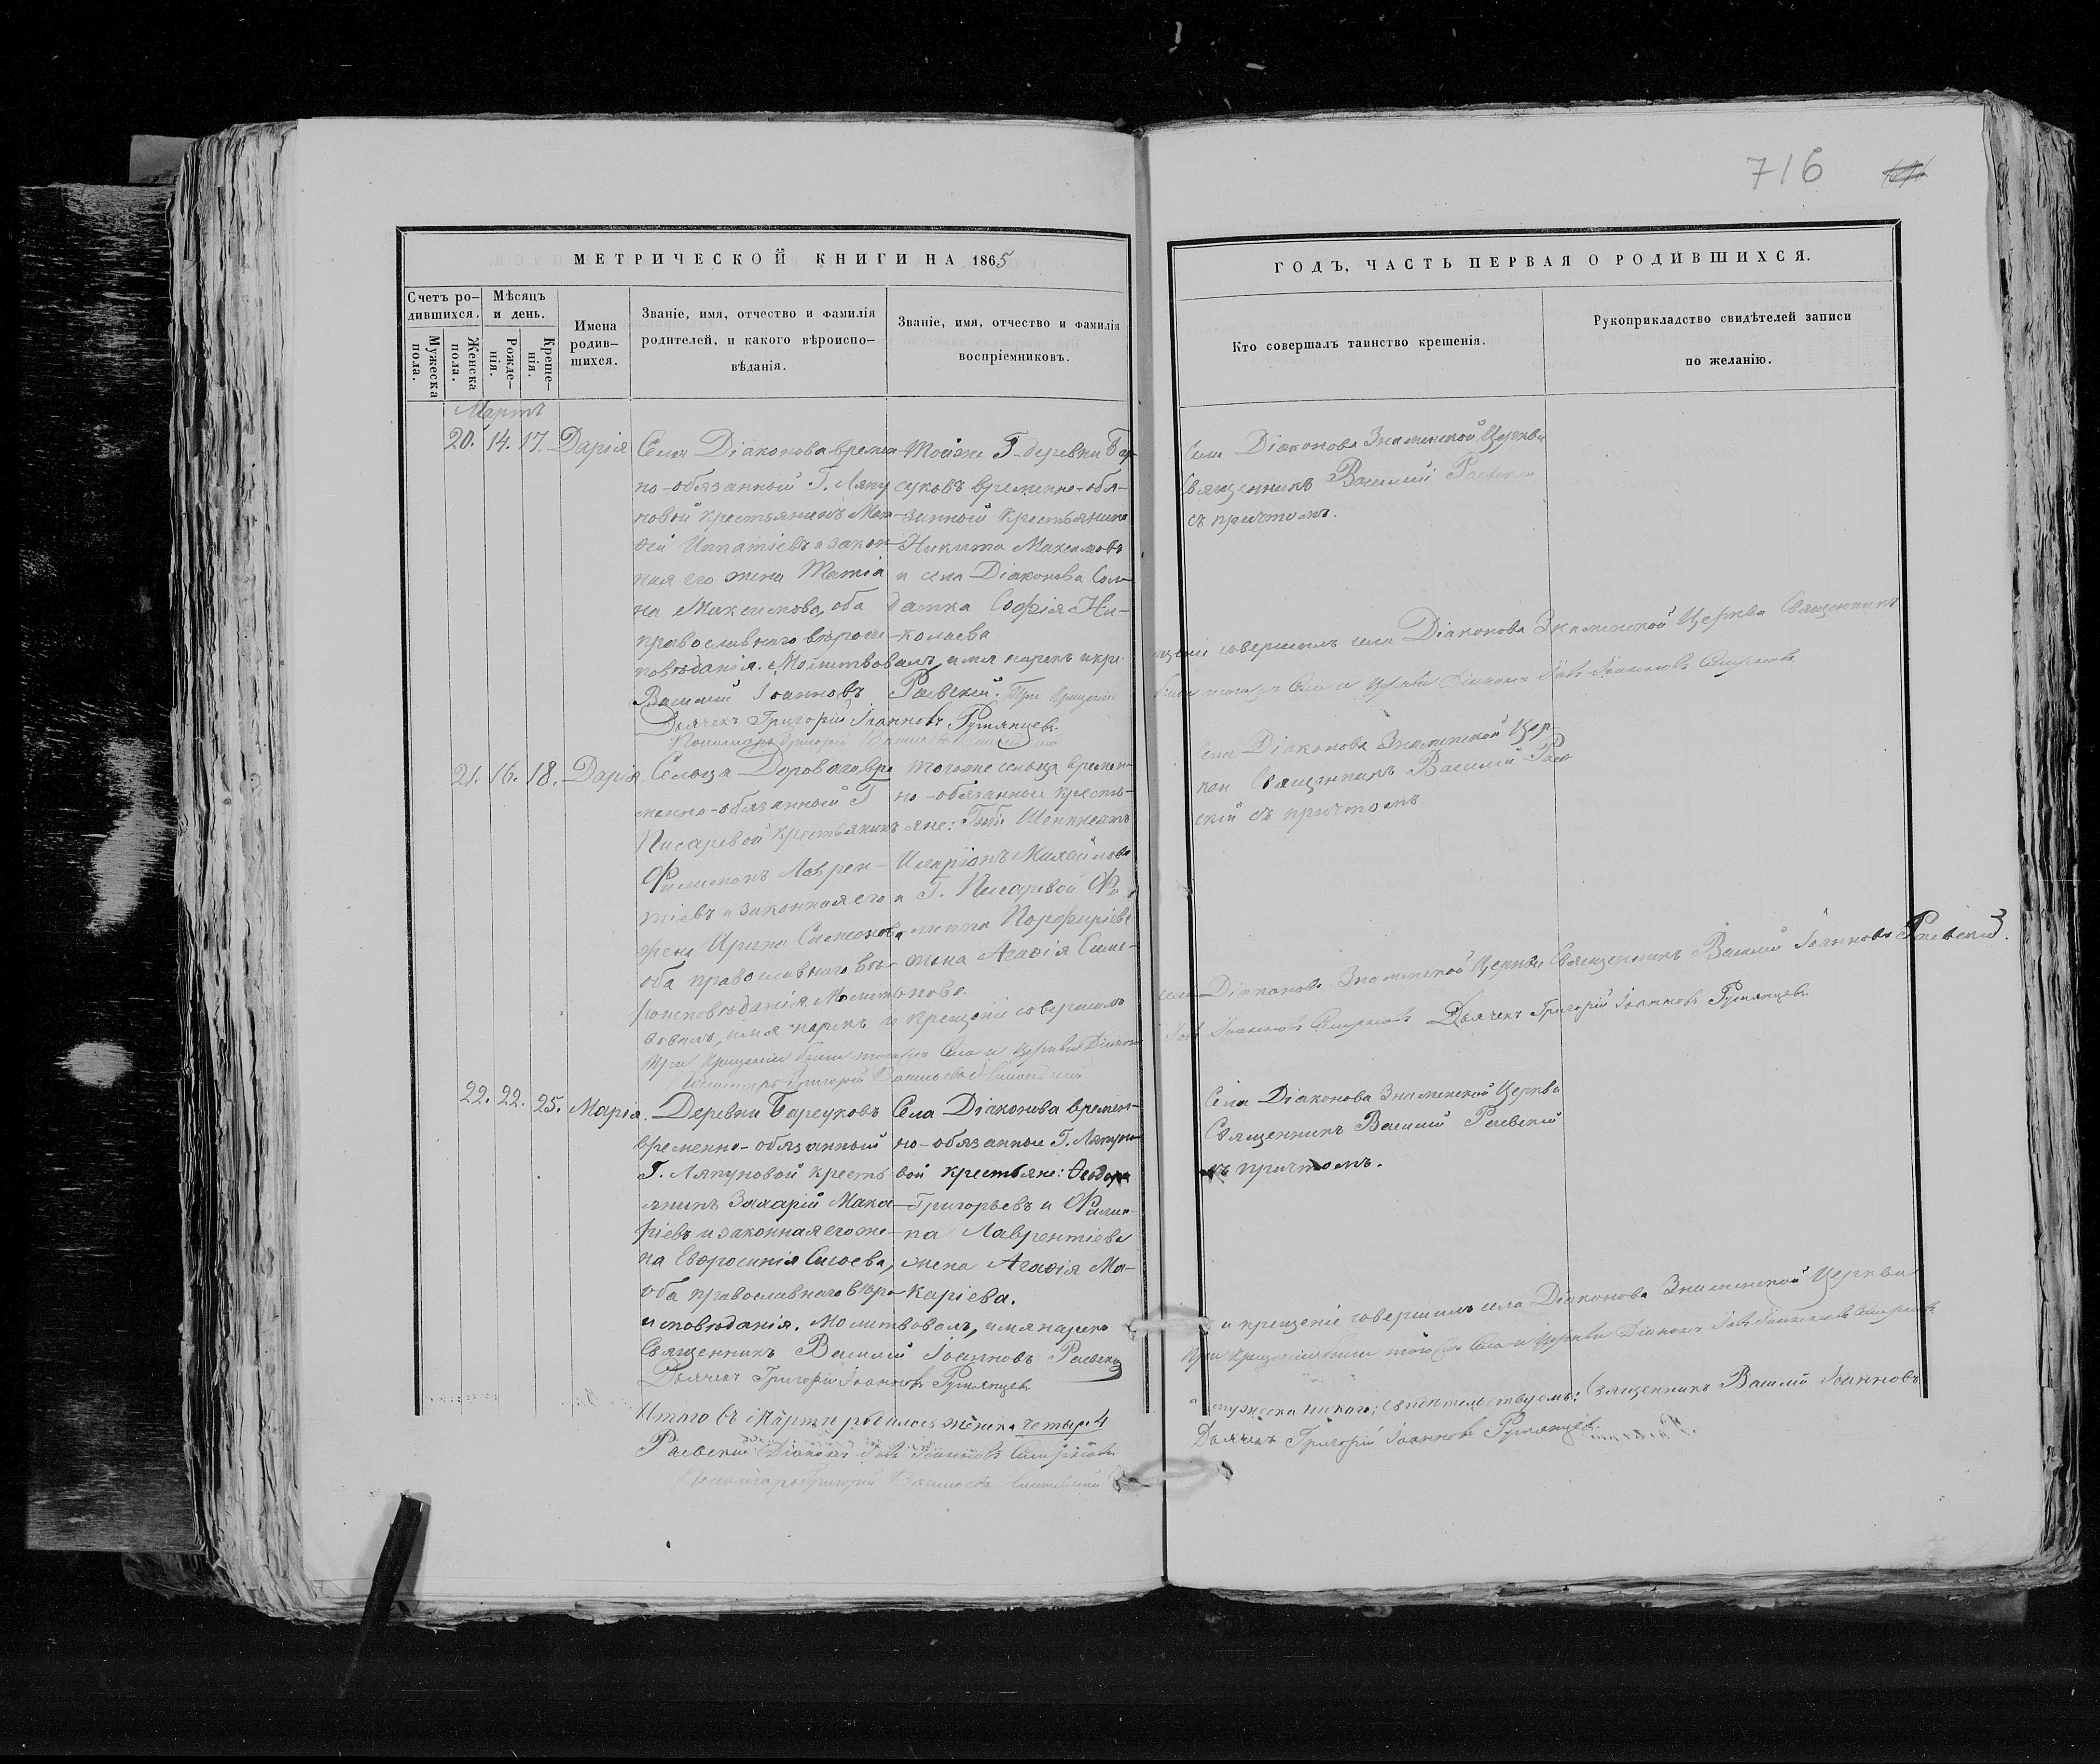 716
МЕТРИЧЕСКОЙ КНИГИ НА 1865
ГОДЪ, ЧАСТЬ ПЕРВАЯ О РОДИВШИХСЯ.
Счетъ ро-
дившихся.
Мужеска
пола.
Женска
пола.
Мѣсяцъ
и день.
Рожде-
нія.
Креще-
нія.
Имена
родив-
шихся.
Званіе, имя, отчество и фамилія
родителей, и какого вѣроиспо-
вѣданія.
Званіе, имя, отчество и фамилія
воспріемниковъ.
Кто совершалъ таинство крешенія.
Рукоприкладство свидѣтелей записи
по желанію.
Мартъ
20. 14. 17. Дарія
Села Діаконова времен
но-обязанный Г. Ляпу
новой крестьянинъ
Ипатіевъ и закон
ная его жена
на Максимова, оба
православнаго вѣроис
повѣданія. Молитвовалъ, имя нарекъ и кре
Василій Іоанновъ Раевскій. При крещеніи
Дьячекъ Григорій Іоанновъ Румянцевъ
Пономарь Григорій Васильевъ
Тойже Г. деревни Бар-
суковъ временно-обя-
занный крестьянинъ
Никита Максимовъ
и села Діаконова Сол-
датка Софія Ни-
колаева
Села Діаконова Знаменской Церкви
Священникъ Василій Раевскій
съ причтомъ.
щеніе совершилъ села Діаконова Знаменской Церкви Священникъ
были тогожъ Села и Церкви Діаконъ Іоанновъ Смирновъ
21. 16. 18. Дарія
Сельца Дороваго вре
менно-обязанный Г
Писаревой крестьянинъ
Филимонъ Лаврен-
тіевъ и законная его
жена Ирина Симонова
оба православнаго вѣ-
роисповѣданія. Молитв
овалъ, имя нарекъ и крещеніе совершилъ
При крещеніи были тогожъ Села и Церкви Діаконъ
Пономарь Григорій Васильевъ
тогоже сельца времен-
но-обязанные кресть-
яне:
Иларіонъ Михайловъ
и Г. Писаревой Фи
липпа Порфиріева
жена Агафія Симо-
нова.
Села Діаконова Знаменской Цер-
кви Священникъ Василій Раев
скій съ причтомъ
села Діаконова Знаменской Церкви Священникъ Василій Іоанновъ Раевскій.
Іоанновъ Смирновъ Дьячекъ Григорій Іоанновъ Румянцевъ
22. 22. 25. Марія.
Деревни Барсуковъ
временно-обязанный
Г. Ляпуновой кресть
янинъ Захарій Мака-
ріевъ и законная его же-
на Евфросинія Сысоева,
оба православнаго вѣро
исповѣданія. Молитвовалъ, имя нарекъ
Священникъ Василій Іоанновъ Раевскій
Дьячекъ Григорій Іоанновъ Румянцевъ
Села Діаконова времен-
но-обязанные Г. Ляпуно
вой крестьяне: Ѳеодоръ
Григорьевъ и Филип-
па Лаврентіева
жена Агафія Ма-
каріева.
Села Діаконова Знаменской Церкви
Священникъ Василій Раевскій
съ причтомъ.
и крещеніе совершилъ села Діаконова Знаменской Церкви
При крещеніи были того же Села и Церкви Діаконъ Іоанновъ Смирновъ
Итого въ Мартѣ родилось женска четыре 4
а мужеска никого; свидѣтельствуемъ: Священникъ Василій Іоанновъ
Раевскій Діаконъ Іоанновъ Смирновъ
Дьячекъ Григорій Іоанновъ Румянцевъ
Пономарь Григорій Васильевъ